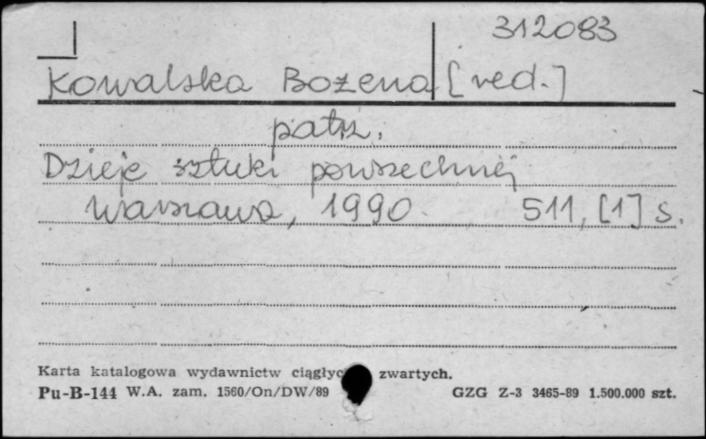 312083
Kowalska Bożena [red.]
patrz.
Dzieje sztuki powszechnej
Warszawa, 1990. 511, [1] s.
Karta katalogowa wydawnictw ciągłyc zwartych.
Pu-B-144 W.A. zam. 1560/On/DW/89 GZG Z-3 3465-89 1.500.000 szt.